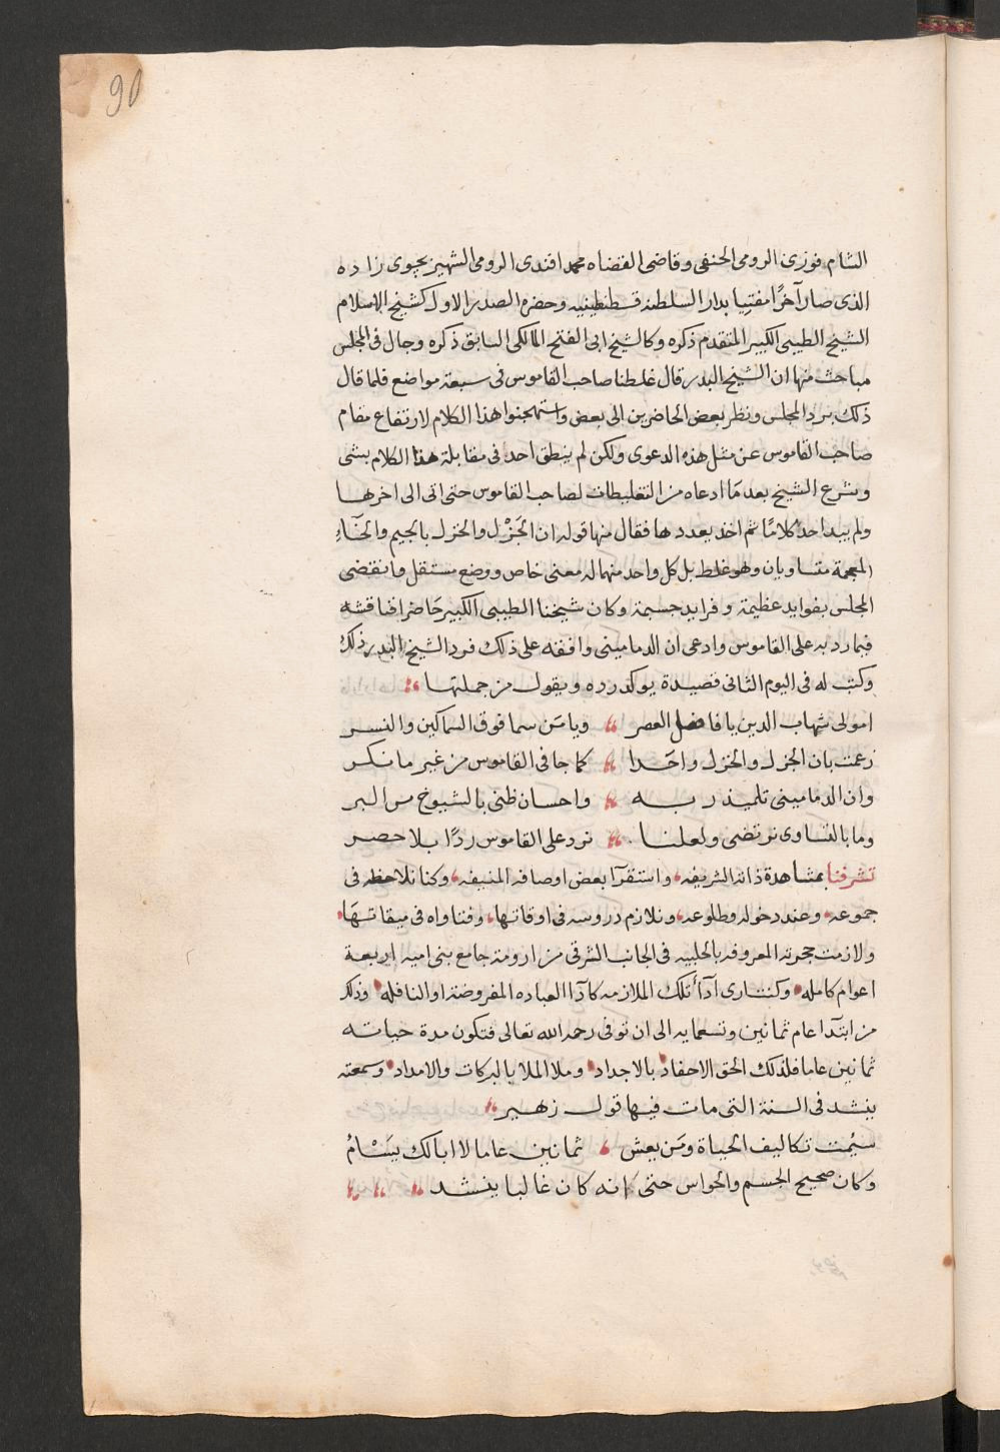 90
الشام فوزى الرومى الحنفى وقاضى القضاه محمد افندى الرومى الشهير بجوى زاده
الذى صار آخرًا مفتيا بدار السلطنه قسطنطينيه وحضره الصدر الاول كشيخ الاسلام
الشيخ الطيبى الكبير المتقدم ذكره وكالشيخ ابى الفتح المالكى السابق ذكره وجال فى المجلس
مباحث منها ان الشيخ البدر قال غلطنا صاحب القاموس فى سبعة مواضع فلما قال
ذلك برد المجلس ونظر بعض الحاضرين الى بعض واستهجنوا هذا الكلام لارتفاع مقام
صاحب القاموس عن مثل هذه الدعوى ولكن لم ينطق احد فى مقابلة هذا الكلام بشى
وشرع الشيخ بعد ما ادعاه من التغليطات لصاحب القاموس حتى اتى الى اخرها
ولم يبد احد كلامًا ثم اخذ يعددها فقال منها قوله ان الجَزْل والخزل بالجيم والخَاءِ
المعجمة متساويان وهو غلط بل كل واحد منهما له معنى خاص ووضع مستقل وانقضى
المجلس بفوايد عظيمة وفرايد جسيمة وكان شيخنا الطيبى الكبير حَاضرا فناقشه
فيما رد به على القاموس وادعى ان الدمامينى وافقه على ذلك فرد الشيخ البدر ذلك
وكتب له فى اليوم الثانى قصيدة يوكد رده ويقول من جملتها
امولى شهاب الدين يا فاضل العصر ويا مَن سما فوق السماكين والنسر
زعمت بان الجزل والخزل واحَدا كما جا فى القاموس من غير ما نكر
وان الدمامينى تلميذ ربه واحسان ظنى بالشيوخ من البر
وما بالتساوى نرتضى ولعلنا نرد على القاموس ردًا بلا حصر
تشرفنا بمشاهدة ذاته الشريفه واستقرآ بعض اوصافه المنيفه وكنا نلاحظه فى
جموعه وعند دخوله وطلوعه ونلازم دروسه فى اوقاتها وفتاواه فى ميقاتهَا
ولازمت حجرته المعروفه بالحلبيه فى الجانب الشرقى من اروقة جامع بنى اميه اربعة
اعوام كامله وكنت ارى آدآ تلك الملازمه كادآ العباده المفروضة او النافله وذلك
من ابتدآ عام ثمانين وتسعمايه الى ان توفى رحمه الله تعالى فتكون مدة حياته
ثمانين عاما فلذلك الحق الاحفاد بالاجداد وملا الملا بالبركات والامداد وسمعته
ينشد فى السنة التى مات فيها قول زهير
سئمت تكاليف الحياة ومَن يعش ثمانين عاما لا ابالك يَسْامُ
وكان صحيح الجسم والحواس حتى انه كان غالبا ينشد